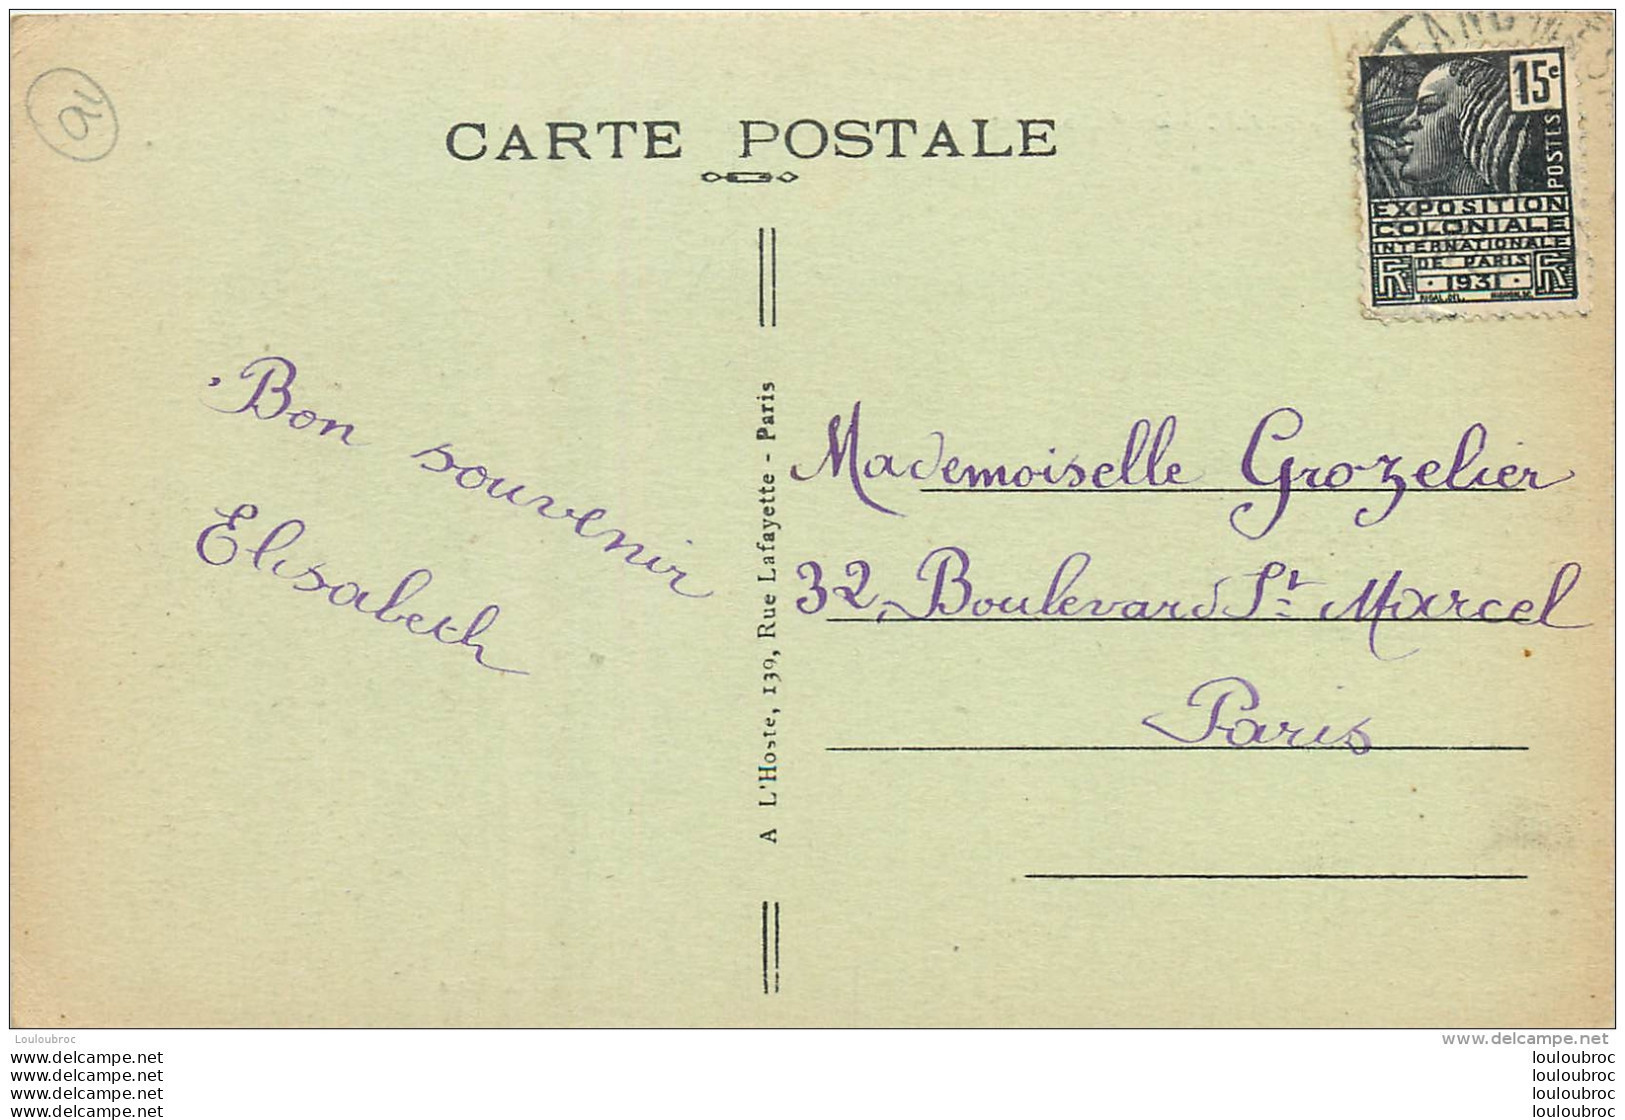 16
CARTE POSTALE
15c
POSTES
EXPOSITION
COLONIALE
INTERNATIONALE
DE PARIS
RF · 1931 · RF
Bon souvenir
Elisabeth
A L'Hoste, 139, Rue Lafayette - Paris
Mademoiselle Grozelier
32, Boulevard St Marcel
Paris
Louloubroc
www.delcampe.net
www.delcampe.net
www.delcampe.net
www.delcampe.net
www.delcampe.net
louloubroc
louloubroc
louloubroc
louloubroc